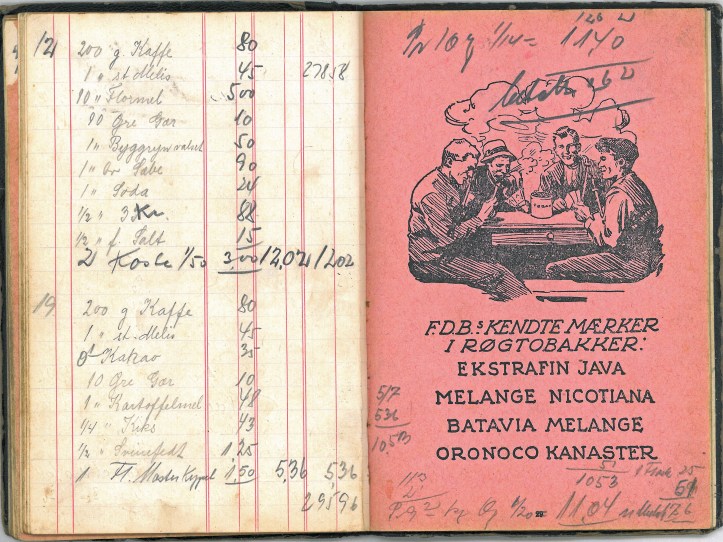 12 200 g Kaffe 80
1 " st. Melis 45 27858
10 " Flormel 500
10 Øre Gær 10
1 " Byggryn valset 50
1 " br Sæbe 90
1 " Soda 24
1/2 " 3 Kr. 88
1/2 " f. Salt 15
2 Koste 1/50 3,00 12,02 12,02
19 200 g Kaffe 80
1 " st. Melis 45
Kakao 35
10 Øre Gær 10
1 " Kartoffelmel 48
1/4 " Kiks 43
1/2 " Svinefedt 1,25
1 Fl. 1,50 5,36 5,36
29596
1/14 = 1140
TOBAK
F.D.B.s KENDTE MÆRKER
I RØGTOBAKKER:
EKSTRAFIN JAVA
MELANGE NICOTIANA
BATAVIA MELANGE
ORONOCO KANASTER
5/7
536
1053
51
1053
29
11,04